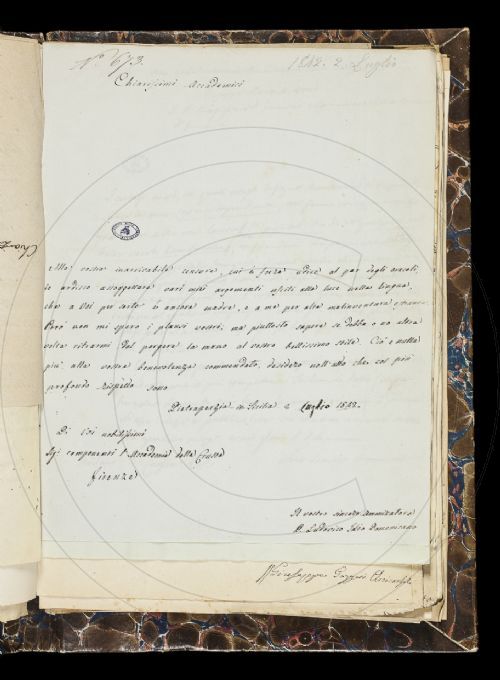 N.° 673.
1842. 2 Luglio
Chiarissimi Accademici
Alla vostra inarrivabile censura, cui è forza udire al par degli oracoli,
io ardisco assoggettare vari miei argomenti usciti alla luce nella lingua,
che a Voi per sorte è ancora madre, e a me per alta malinventura
Però non mi spero i plausi vostri, ma piuttosto sapere se debba o no altra
volta ritrarmi dal porgere la mano al vostro bellissimo stile. Ciò è molto
più alla vostra benevolenza commendato, desidero nell'atto che col più
profondo rispetto sono
Pietraperzia in Sicilia 2 Luglio 1842.
Di Voi nobilissimi
Sig.i componenti l'Accademia della Crusca
Firenze
Il vostro sincero ammiratore
P. Ludovico Domenicano
Giuseppe